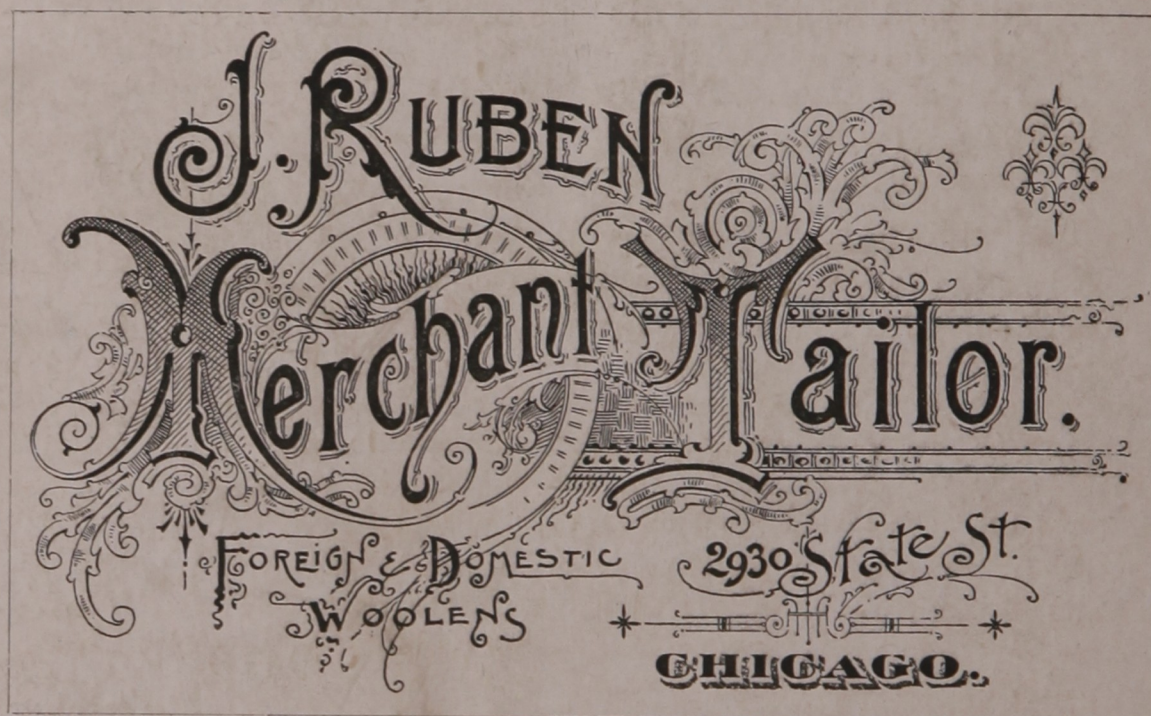 J. RUBEN
Merchant Tailor.
FOREIGN & DOMESTIC
WOOLENS
2930 State St.
CHICAGO.